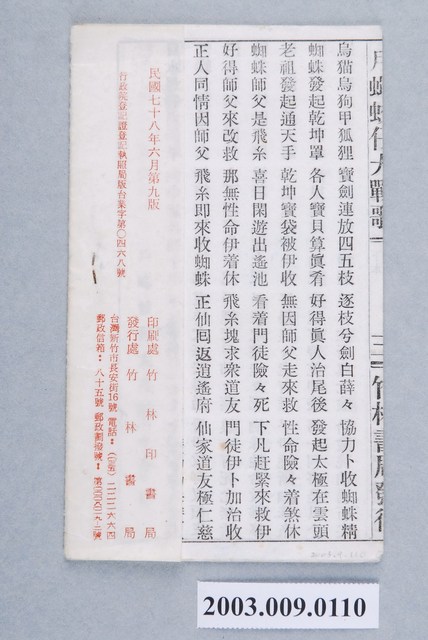 蜘蛛仔大戰歌
三
竹林書局發行
烏猫烏狗甲狐狸 寶劍連放四五枝 逐枝兮劍白薛々 協力卜收蜘蛛精
蜘蛛發起乾坤罩 各人寶貝算眞肴 好得眞人治尾後 發起太極在雲頭
老祖發起通天手 乾坤寶袋被伊收 無因師父走來救 性命險々着煞休
蜘蛛師父是飛糸 喜日閑遊出遙池 看着門徒險々死 下凡赶緊來救伊
好得師父來改救 那無性命伊着休 飛糸塊求衆道友 門徒伊卜加治收
正人同情因師父 飛糸即來收蜘蛛 正仙囘返逍遙府 仙家道友極仁慈
民國七十八年六月第九版
行政院登記證登記執照局版台業字第〇四六八號
印刷處 竹林印書局
發行處 竹林書局
台灣新竹市長安街16號 電話:
郵政信箱:八十五號 郵政劃撥號:
2003.009.0110